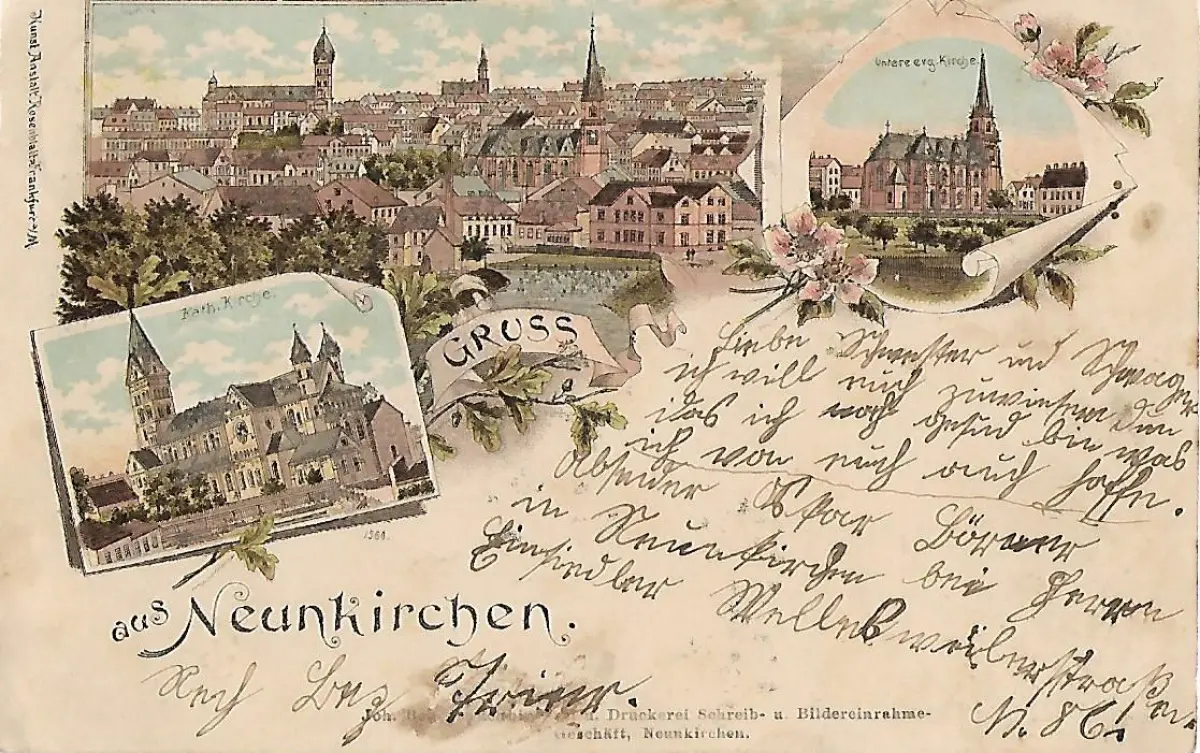 Kunst Anstalt Rosenblatt Frankfurt a/M
Untere evg. Kirche.
Kath. Kirche.
1364.
GRUSS
aus Neunkirchen.
Liebe Schwester und Schwager
ich will euch zuwiesen den
das ich noch gesud bin was
ich von euch auch hoffe.
Absender Oskar Börner
in Neunkirchen bei Herrn
Einsiedler Wellesweilerstraße
N. 86.
Bez Trier.
Joh. u. Druckerei Schreib- u. Bildereinrahme-
Geschäft, Neunkirchen.